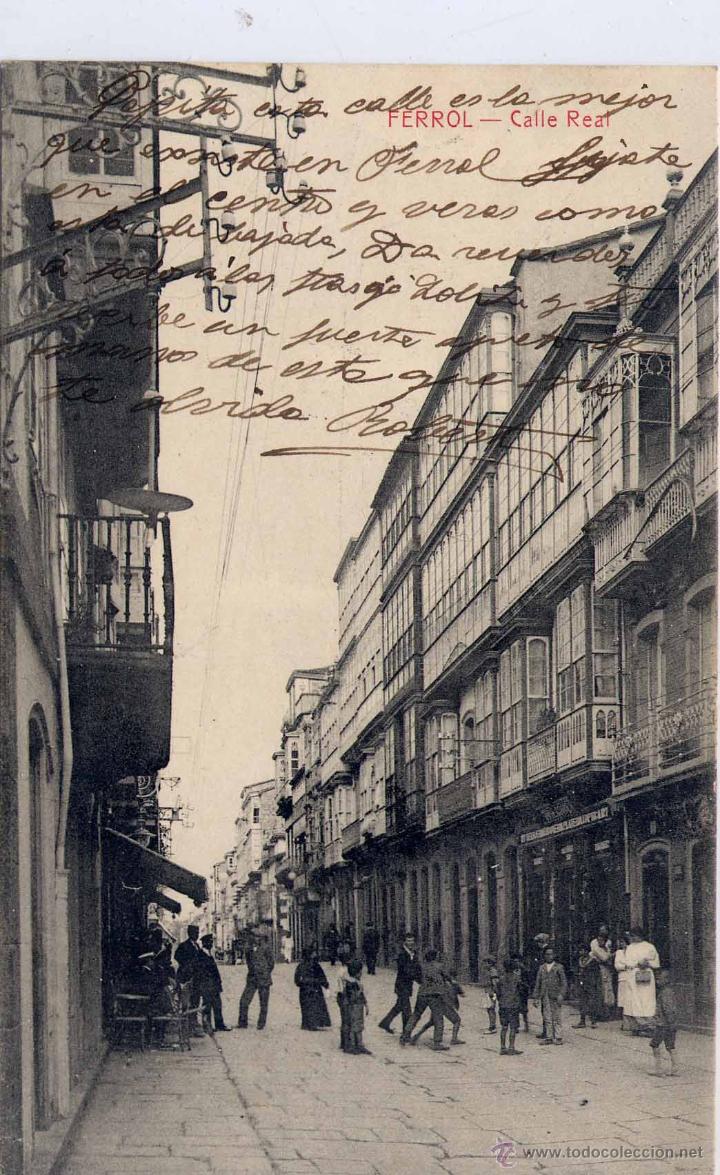 Pepita esta calle es la mejor
FERROL — Calle Real
que existe en Ferrol fijate
en el centro y veras como
esta de bajada, Da recuerdos
á todos á las
recibe un fuerte apreton de
manos de este que no
te olvida
www.todocoleccion.net